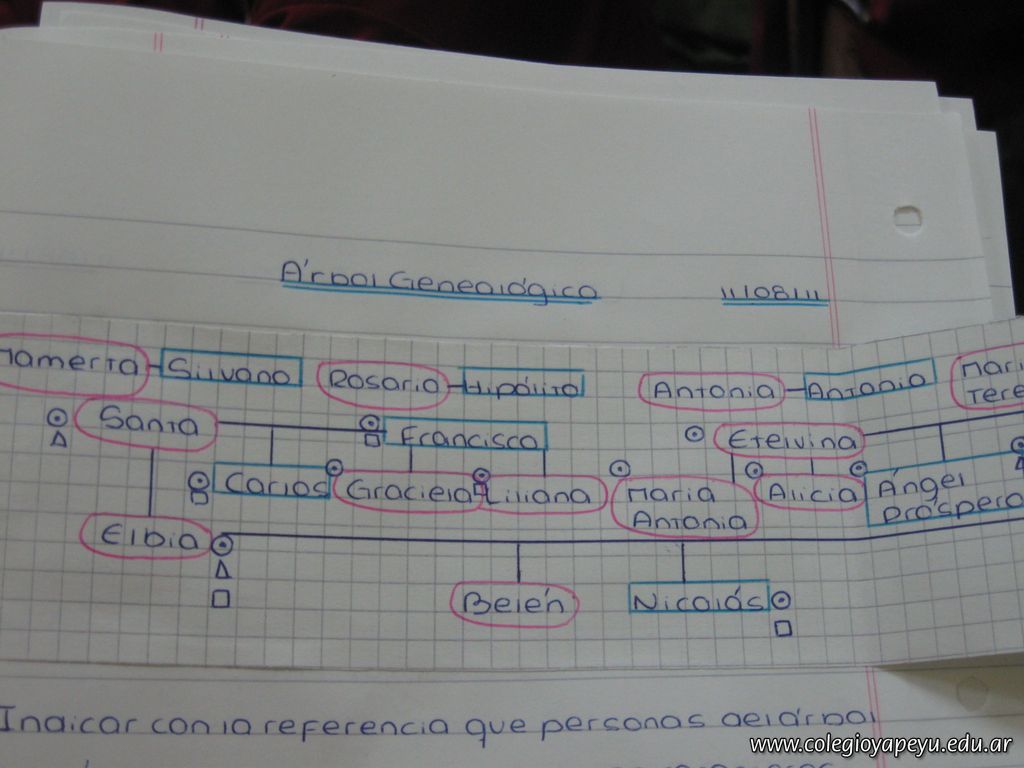 Árbol Genealógico 11/08/11
Mamerta Silvano Rosario Hipólito Antonia Antonio
Santa Francisco Etelvina
Carlos Graciela Liliana María Antonia Alicia Ángel Próspero
Elbia
Belén Nicolás
Indicar con la referencia que personas del árbol
www.colegioyapeyu.edu.ar